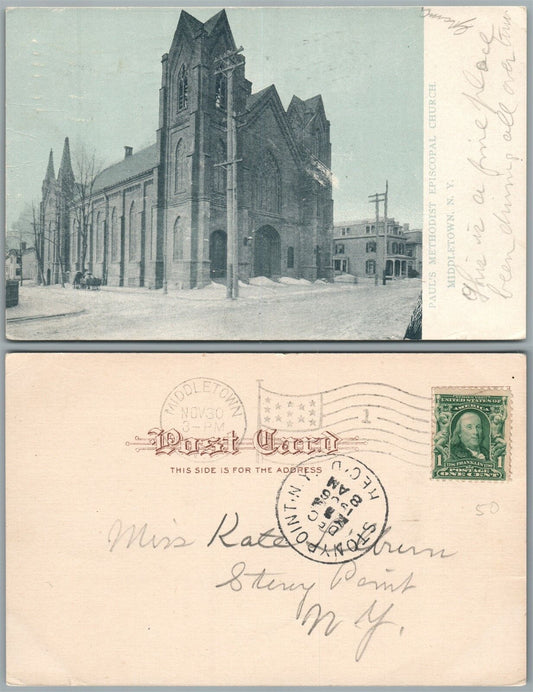 PAUL'S METHODIST EPISCOPAL CHURCH.
MIDDLETOWN, N. Y.
This is a fine place
been driving all over town
MIDDLETOWN
NOV 30
3-PM
1
Post Card
THIS SIDE IS FOR THE ADDRESS
UNITED STATES OF
AMERICA
FRANKLIN
POSTAGE
ONE CENT
STONY POINT N.Y.
REC'D
DEC
8
AM
50
Miss Kate
Stony Point
N.Y.